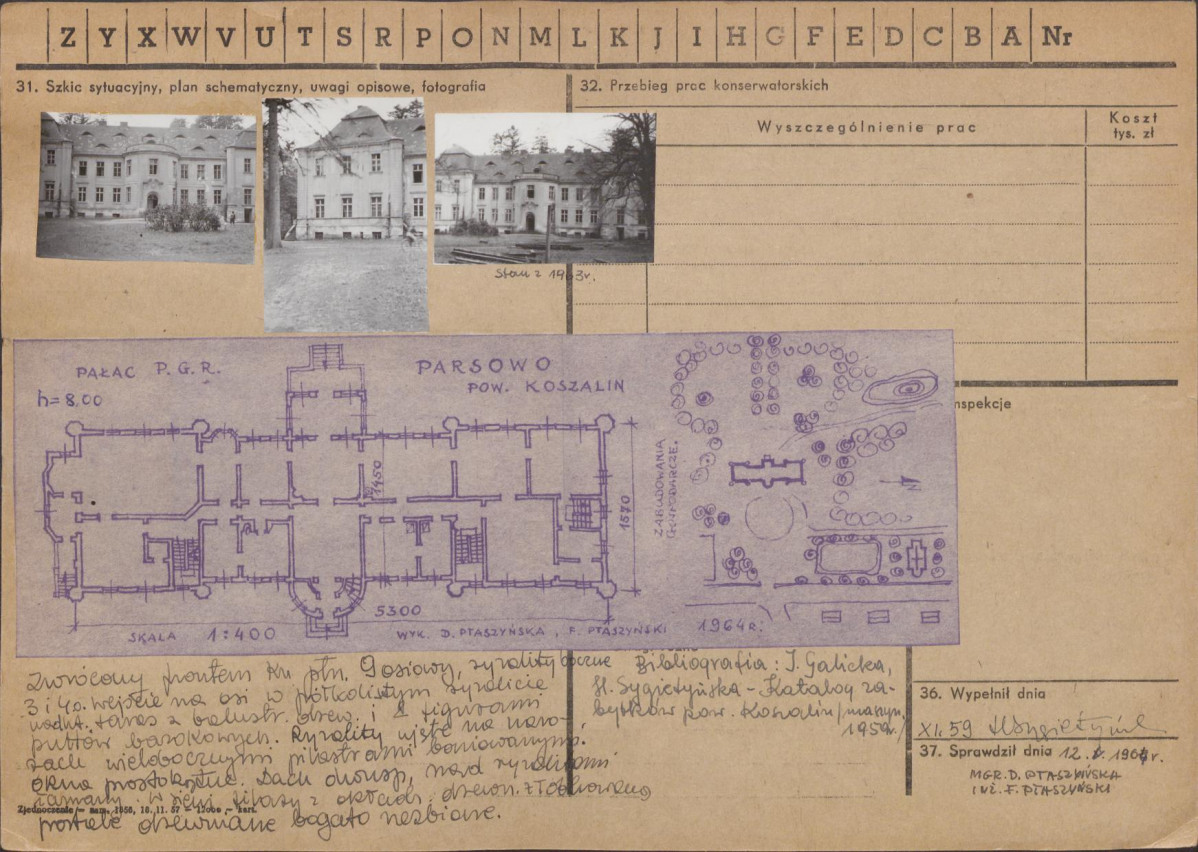 Z Y X W V U T S R P O N M L K J I H G F E D C B A Nr
31. Szkic sytuacyjny, plan schematyczny, uwagi opisowe, fotografia
32. Przebieg prac konserwatorskich
Wyszczególnienie prac
Koszt
tys. zł
Stan z 1963r.
PAŁAC P.G.R.
h=8.00
PARSOWO
POW. KOSZALIN
1450
1570
5300
SKALA 1:400
WYK. D. PTASZYŃSKA, F. PTASZYŃSKI 1964r.
ZABUDOWANIA
GOSPODARCZE.
N
nspekcje
Zwrócony frontem kn. płn. 9osiowy, ryzality boczne
3 i 4o. wejście na osi w półkolistym ryzalicie
taras z balustr. drew. i 2 figurami
puttów barokowych. Ryzality ujęte na naro-
żach wielobocznymi pilastrami boniowanymi.
okna prostokątne. Dach dwusp, nad ryzalitami
łamany. W sieni filary z okładz. drewn.
portale drewniane bogato rzeźbione.
Zjednoczenie – zam. 1056, 16. 11. 57 – 12000 – kart.
Bibliografia: I. Galicka,
H. Sygietyńska – Katalog za-
bytków pow. Koszalin /maszyn.
1959r./
36. Wypełnił dnia
XI. 59 HSygietyńska
37. Sprawdził dnia 12. X. 1964r.
MGR. D. PTASZYŃSKA
INŻ. F. PTASZYŃSKI